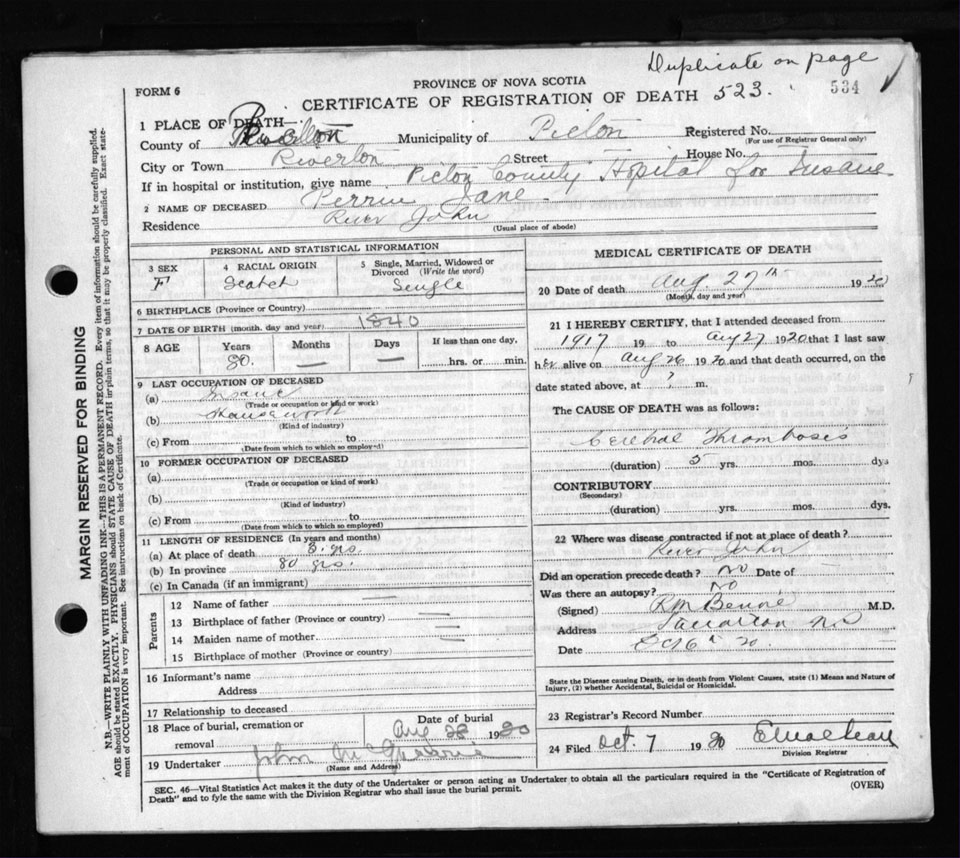 Duplicate on page
PROVINCE OF NOVA SCOTIA
FORM 6
CERTIFICATE OF REGISTRATION OF DEATH 523.
534
1 PLACE OF DEATH—
County of Municipality of Pictou Registered No.
(For use of Registrar General only)
City or Town Riverton Street House No.
If in hospital or institution, give name Pictou County Hopital for Insane
2 NAME OF DECEASED Perrin Jane
Residence River John
(Usual place of abode)
PERSONAL AND STATISTICAL INFORMATION
3 SEX
F
4 RACIAL ORIGIN
Scotch
5 Single, Married, Widowed or Divorced (Write the word)
Single
6 BIRTHPLACE (Province or Country)
7 DATE OF BIRTH (month, day and year) 1840
8 AGE Years Months Days If less than one day,
80. — — hrs. or min.
9 LAST OCCUPATION OF DECEASED
(a) Insane
(Trade or occupation or kind or work)
(b) Housework
(Kind of industry)
(c) From to
(Date from which to which so employed)
10 FORMER OCCUPATION OF DECEASED
(a)
(Trade or occupation or kind of work)
(b)
(Kind of industry)
(c) From to
(Date from which to which so employed)
11 LENGTH OF RESIDENCE (In years and months)
(a) At place of death 3 yrs.
(b) In province 80 yrs.
(c) In Canada (if an immigrant)
Parents
12 Name of father —
13 Birthplace of father (Province or country) —
14 Maiden name of mother —
15 Birthplace of mother (Province or country)
16 Informant's name
Address
17 Relationship to deceased
18 Place of burial, cremation or removal
Date of burial
Aug 28 1920
19 Undertaker John
(Name and Address)
MEDICAL CERTIFICATE OF DEATH
20 Date of death Aug. 27th 1920
(Month, day and year)
21 I HEREBY CERTIFY, that I attended deceased from
1917 19 to Aug 27 1920 that I last saw
her alive on Aug 26 1920 and that death occurred, on the
date stated above, at ? m.
The CAUSE OF DEATH was as follows:
Cerebral Thrombosis
(duration) 5 yrs. mos. dys
CONTRIBUTORY
(Secondary)
(duration) yrs. mos. dys.
22 Where was disease contracted if not at place of death?
River John
Did an operation precede death? No Date of
Was there an autopsy? No
(Signed) M.D.
Address Stellarton NS
Date 20
State the Disease causing Death, or in death from Violent Causes, state (1) Means and Nature of
Injury, (2) whether Accidental, Suicidal or Homicidal.
23 Registrar's Record Number
24 Filed Oct. 7 1920
Division Registrar
SEC. 46—Vital Statistics Act makes it the duty of the Undertaker or person acting as Undertaker to obtain all the particulars required in the "Certificate of Registration of
Death" and to fyle the same with the Division Registrar who shall issue the burial permit.
(OVER)
MARGIN RESERVED FOR BINDING
N.B.—WRITE PLAINLY WITH UNFADING INK—THIS IS A PERMANENT RECORD. Every item of information should be carefully supplied.
AGE should be stated EXACTLY. PHYSICIANS should STATE CAUSE OF DEATH in plain terms, so that it may be properly classified. Exact statement of OCCUPATION is very important. See instructions on back of Certificate.